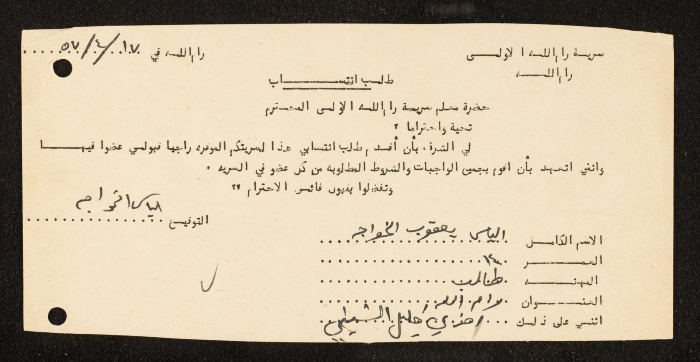 سرية رام الله الاولى
رام الله
رام الله في ١٧/٤/٥٧
طلب انتساب
حضرة معلم سرية رام الله الاولى المحترم
تحية واحتراما ؟
لي الشرف بأن أقدم طلب انتسابي هذا لسريتكم الموقره راجيا قبولي عضوا فيها
وانني اتعهد بأن اقوم بجميع الواجبات والشروط المطلوبه من كل عضو في السريه .
وتفضلوا بقبول فائق الاحترام ؟؟
التوقيع الياس الخواجه
الاسم الكامل الياس يعقوب الخواجه
العمر
المهنه طالب
العنوان رام الله
اثني على ذلك